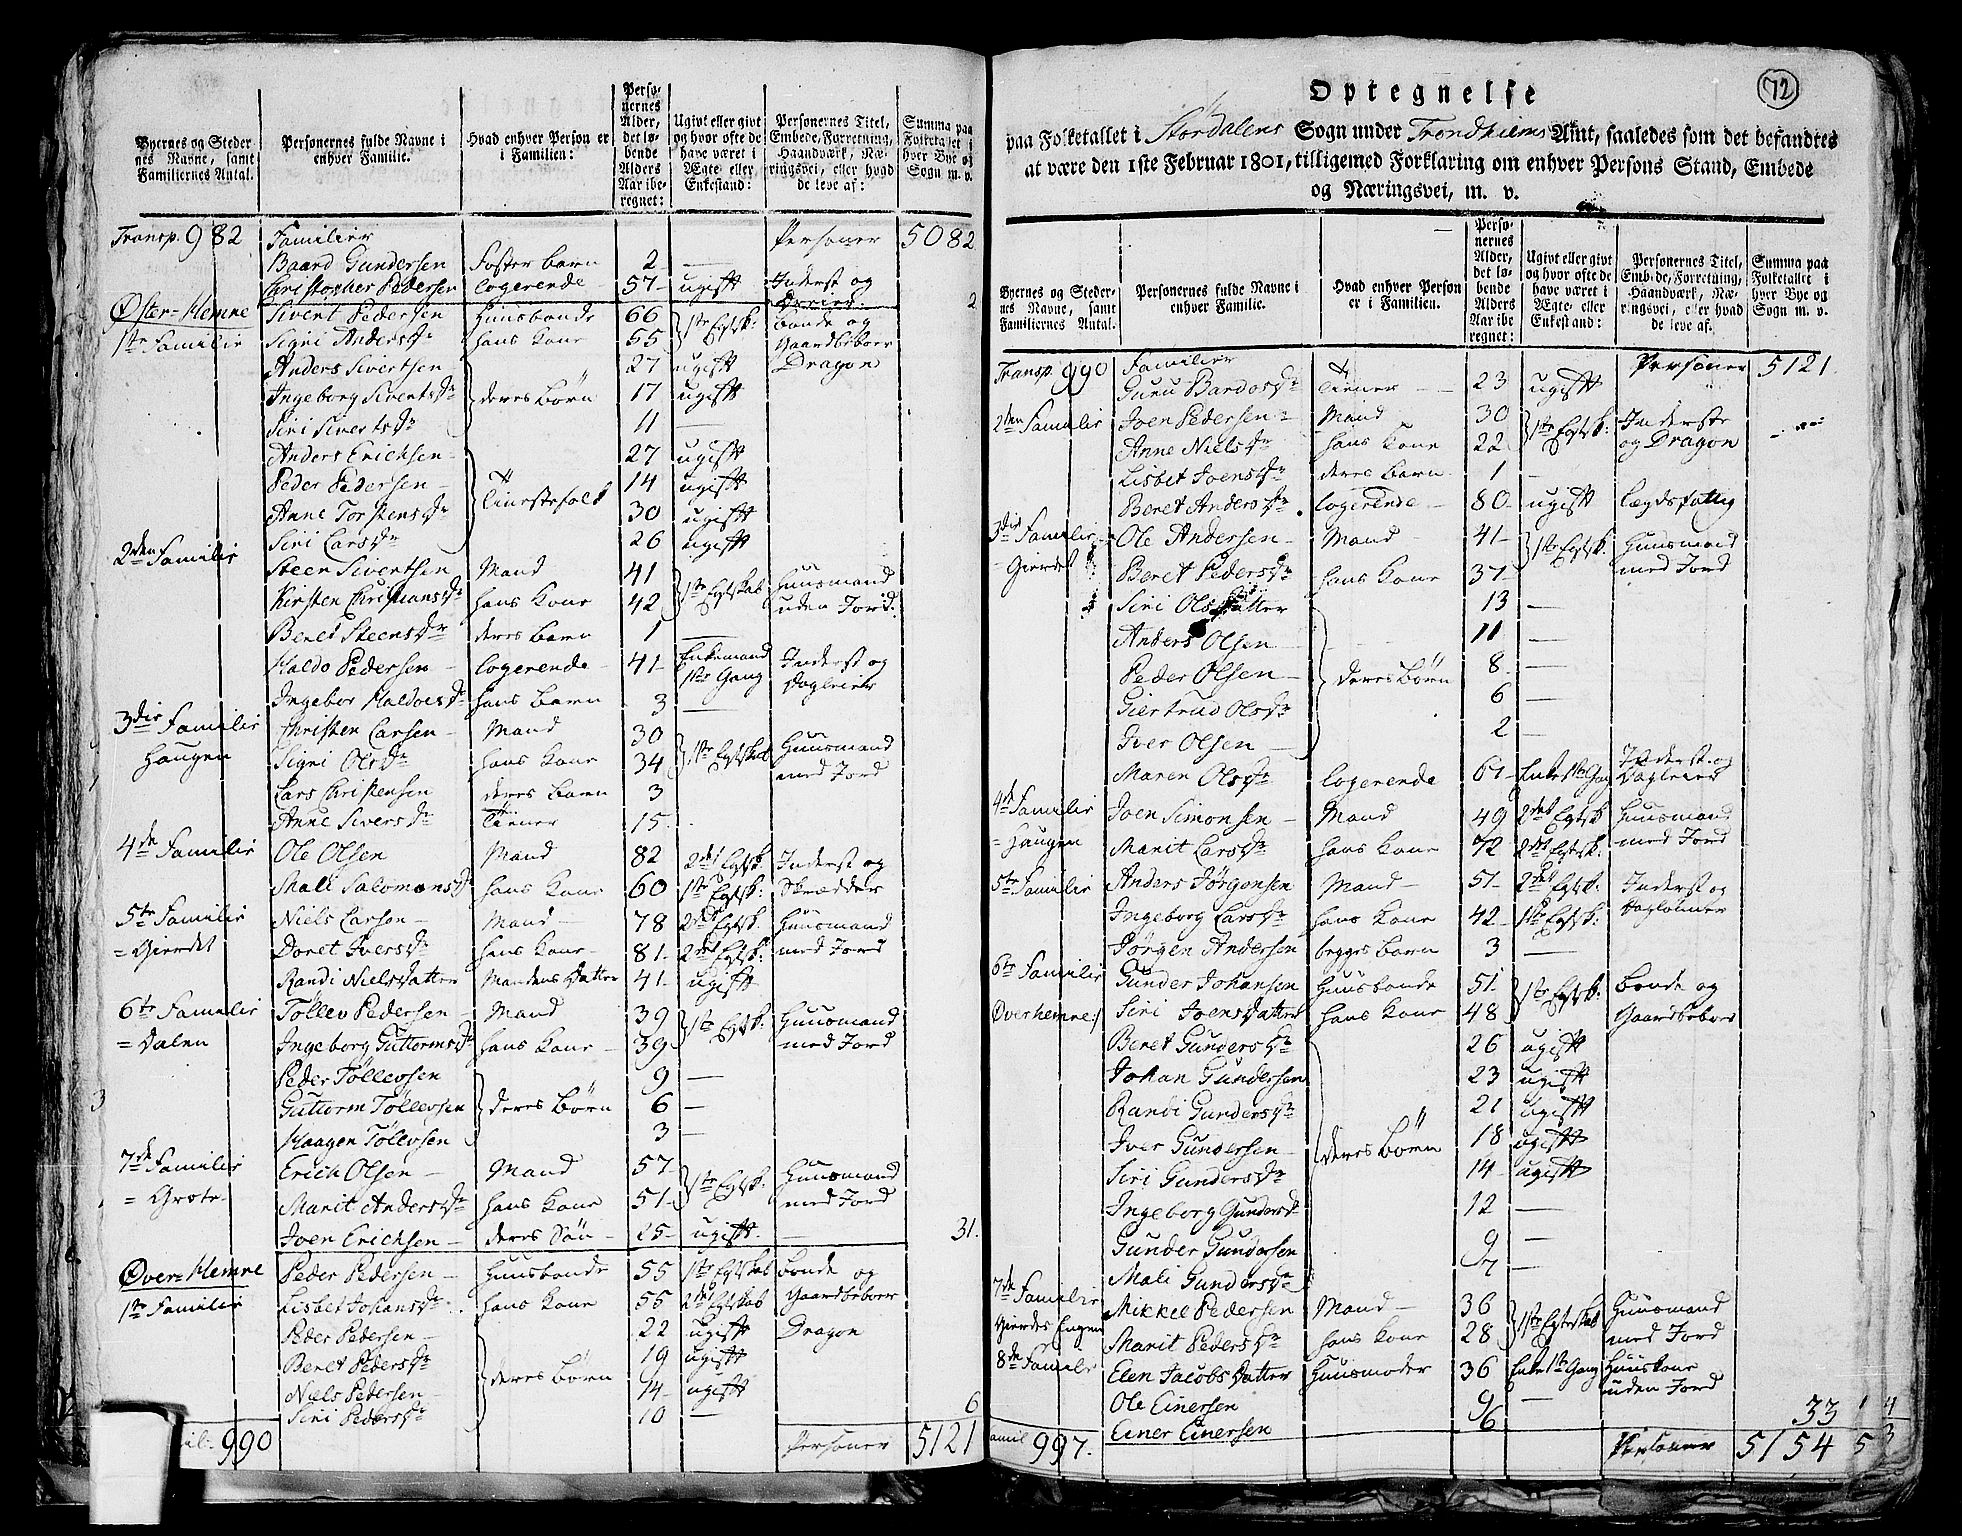 Byernes og Stedernes Navne, samt Familiernes Antal. | Personernes fulde Navne i enhver Familie. | Hvad enhver Person er i Familien: | Personernes Alder, det løbende Alders Aar iberegnet: | Ugivt eller givt og hvor ofte de have været i Ægte- eller Enkestand: | Personernes Titel, Embede, Forretning, Haandværk, Næringsvei, eller hvad de leve af: | Summa paa Folketallet i hver Bye og Sogn m. v.
Transp. 982 Familier Personer 5082
Baard Gundersen Foster barn 2 —
Christopher Pedersen logerende 57 ugift Inderst og
Øster-Hemne Sivert Pedersen Huusbonde 66 1ste Egtsk: bonde og 2
1ste Familie Sigri Andersdr hans Kone 55 Gaardbeboer
Anders Sivertsen 27 ugift Dragon
Ingeborg Sivertsdr deres Børn 17 ugift
Siri Sivertsdr 11 —
Anders Erichsen 27 ugift
Peder Pedersen 14 ugift
Tienestefolk
Anne Torstensdr 30 ugift
Siri Larsdr 26 ugift
2den Familie Steen Sivertsen Mand 41 1ste Egtskab Huusmand
Kirsten Christiansdr hans Kone 42 uden Jord.
Beret Steensdr deres Barn 1 —
Haldo Pedersen logerende 41 Enkemand 1ste Gang Inderst og Dagleier
Ingebor Haldoesdr hans Barn 3 —
3die Familie Christen Larsen Mand 30 1ste Egtskab Huusmand
Haugen Sigri Olsdr hans Kone 34 med Jord
Lars Christensen deres Barn 3
Anne Siversdr Tiener 15
4de Familie Ole Olsen Mand 82 2det Egtsk. Inderst og
Mali Salomonsdr hans Kone 60 1ste Egtsk: Skrædder
5te Familie Niels Larsen Mand 78 2det Egtsk. Huusmand
= Gierdet Doret Iversdr hans Kone 81 2det Egtsk: med Jord
Randi Nielsdatter Mandens Datter 41 ugift
6te Familie Tøllev Pedersen Mand 39 1ste Egtsk: Huusmand
= Dalen Ingeborg Guttormsdr hans Kone 39 med Jord
Peder Tøllevsen 9 —
Guttorm Tøllevsen deres Børn 6 —
Haagen Tøllevsen 3 —
7de Familie Erich Olsen Mand 57 1ste Egtsk. Huusmand
= Grote Marit Andersdr hans Kone 51 med Jord
Joen Erichsen deres Søn 25 ugift. — 31.
Øver-Hemne Peder Pedersen Huusbonde 55 1ste Egtskab bonde og
1ste Familie Lisbet Johansdr hans Kone 55 2det Egtskab Gaardbeboer
Peder Pedersen 22 ugift Dragon
Beret Pedersdr 19 ugift
deres Børn
Niels Pedersen 14 ugift
Siri Pedersdr 10 — 6
990 Personer 5121
72
Optegnelse
paa Folketallet i Stordalens Sogn under Trondhiems Amt, saaledes som det befandtes
at være den 1ste Februar 1801, tilligemed Forklaring om enhver Persons Stand, Embede
og Næringsvei, m. v.
Byernes og Stedernes Navne, samt Familiernes Antal. | Personernes fulde Navne i enhver Familie. | Hvad enhver Person er i Familien. | Personernes Alder, det løbende Alders Aar iberegnet: | Ugivt eller givt og hvor ofte de have været i Ægte- eller Enkestand: | Personernes Titel, Embede, Forretning, Haandværk, Næringsvei, eller hvad de leve af. | Summa paa Folketallet i hver Bye og Sogn m. v.
Transp. 990 Familier Personer 5121.
Guru Bardosdr Tiener 23 ugift
2den Familie Joen Pedersen Mand 30 1ste Egtsk: Inderste
Anne Nielsdr hans Kone 22 og Dragon
Lisbet Joensdr deres Barn 1 —
Beret Andersdr logerende 80 ugift lægdsfattig
3die Familie Ole Andersen Mand 41 1ste Egtsk. Huusmand
Gierdet Beret Pedersdr hans Kone 37 med Jord
Siri Olsdatter 13 —
Anders Olsen 11 —
Peder Olsen deres Børn 8 —
Giertrud Olsdr 6 —
Iver Olsen 2 —
Maren Olsdr logerende 61 Enke 1ste Gang Inderst og Dagleier
4de Familie Joen Simonsen Mand 49 2det Egtsk Huusmand
= Haugen Marit Larsdr hans Kone 72 2det Egtsk: med Jord
5te Familie Anders Jørgensen Mand 51 2det Egtsk. Inderst og
Ingeborg Larsdr hans Kone 42 1ste Egtsk:
Jørgen Andersen begges Barn 3 —
6te Familie Gunder Johansen Huusbonde 51 1ste Egtsk. bonde og
Øverhemne Siri Joensdatter hans Kone 48 Gaardbeboer
Beret Gundersdr 26 ugift
Johan Gundersen 23 ugift
Randi Gundersdr 21 ugift
Iver Gundersen deres Børn 18 ugift
Siri Gundersdr 14 ugift
Ingeborg Gundersdr 12 —
Gunder Gundersen 9 —
Mali Gundersdr 7 —
7de Familie Mikkel Pedersen Mand 36 1ste Egteskab Huusmand
Gierdes Engen Marit Pedersdr hans Kone 28 med Jord
8de Familie Elen Jacobsdatter Huusmoder 36 Enke 1ste Gang Huuskone
uden Jord
Ole Einersen 9 — 33
Einer Einersen 6
997. Personer 5154